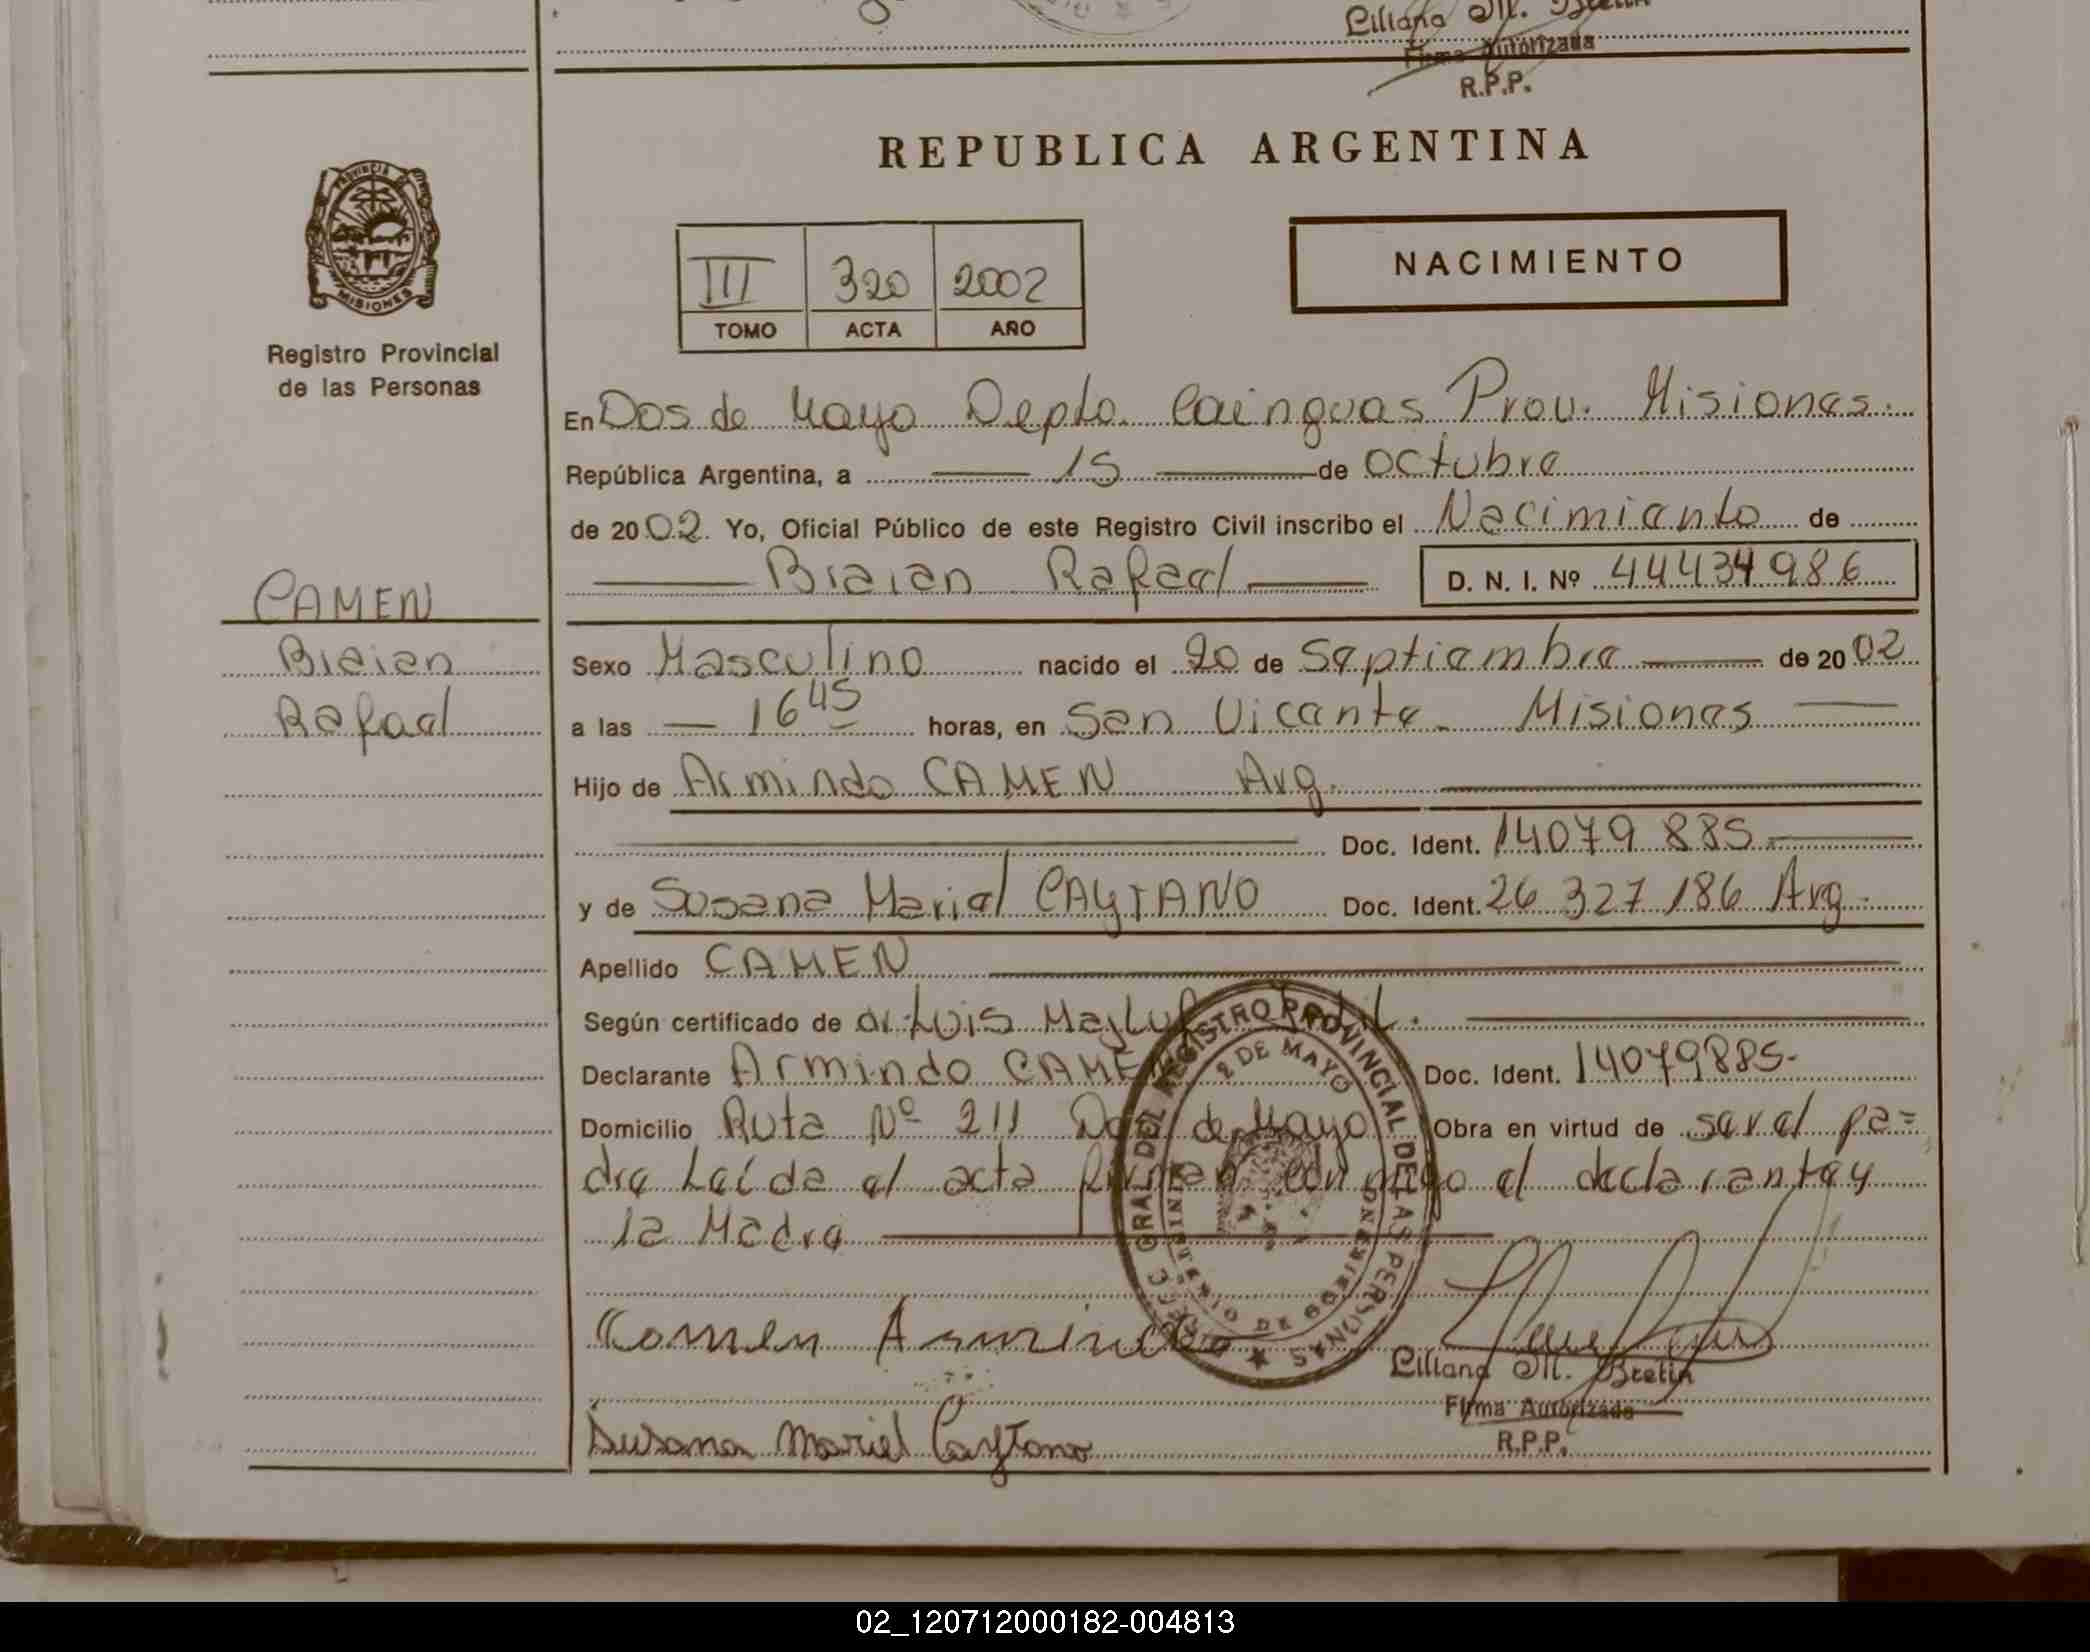 Liliana M. Bretin
Firma Autorizada
R.P.P.
REPUBLICA ARGENTINA
PROVINCIA DE MISIONES
Registro Provincial
de las Personas
III 320 2002
TOMO ACTA AÑO
NACIMIENTO
En Dos de Mayo Depto. Cainguas Prov. Misiones.
República Argentina, a 15 de octubre
de 2002. Yo, Oficial Público de este Registro Civil inscribo el Nacimiento de
Braian Rafael D. N. I. Nº 44434986
CAMEN
Braian
Rafael
Sexo Masculino nacido el 20 de Septiembre de 2002
a las 16 45 horas, en San Vicente - Misiones
Hijo de Armindo CAMEN Arg.
Doc. Ident. 14079 885
y de Susana Mariel CAYTANO Doc. Ident. 26 327 186 Arg.
Apellido CAMEN
Según certificado de dr. Luis
Declarante Armindo CAMEN Doc. Ident. 14079885-
Domicilio Ruta Nº 211 Dos de Mayo Obra en virtud de ser el pa=
dre Leída el acta firman conmigo el declarante y
la Madre
DIRECC. GRAL. DEL REGISTRO PROVINCIAL DE LAS PERSONAS
2 DE MAYO
MINISTERIO DE GOBIERNO
Comen Armindo
Liliana M. Bretin
Firma Autorizada
R.P.P.
Susana Mariel Caytano
02_120712000182-004813